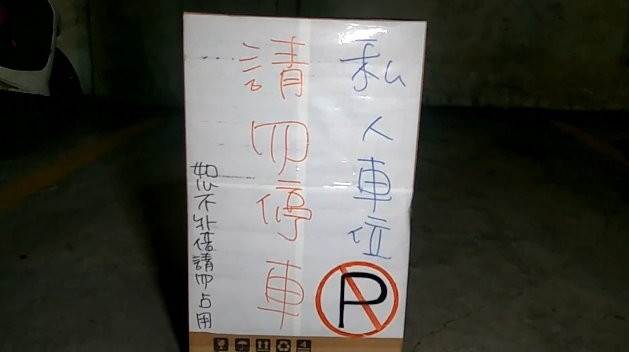 私人車位
P
請勿停車
恕不外借請勿占用